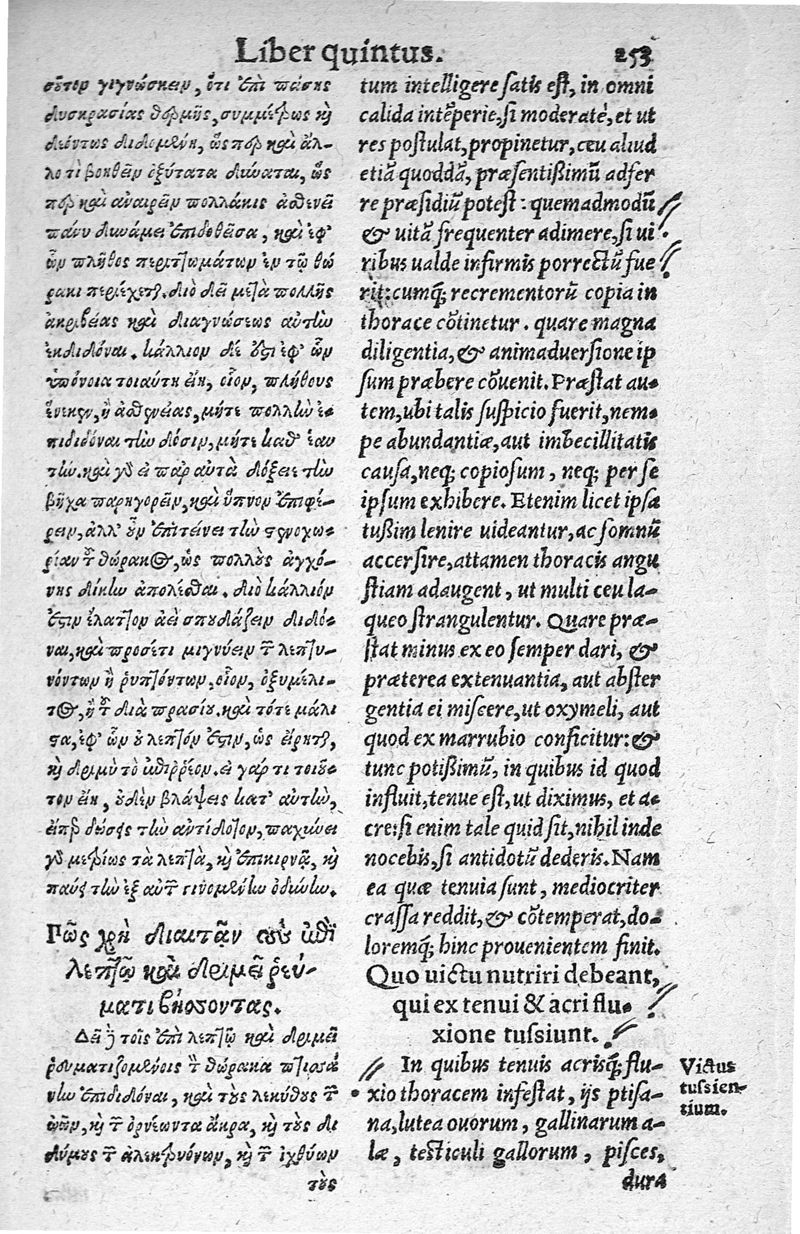 Liber quintus. 253
σοῦτον γιγνώσκειν, ὅτι ἐπὶ πάσης
δυσκρασίας θερμῆς, συμμέτρως καὶ
δεόντως διδομένη, ὥσπερ καὶ ἄλ-
λο τι βοηθεῖν ὀξύτατα δύναται, ὥς
περ καὶ ἀναιρεῖν πολλάκις ἀσθενεῖ
πάνυ δυνάμει ἐπιδοθεῖσα, καὶ ἐφ'
ὧν πλῆθος περιττωμάτων ἐν τῷ θώ
ρακι περιέχεται. διὸ δεῖ μετὰ πολλῆς
ἀκριβείας καὶ διαγνώσεως αὐτὴν
ἐκδιδόναι. κάλλιον δέ ἐστι ἐφ' ὧν
ὑπόνοια τοιαύτη εἴη, οἷον, πλήθους
ἕνεκεν, ἢ ἀσθενείας, μήτε πολλὴν ἐ-
πιδιδόναι τὴν δόσιν, μήτε καθ' ἑαυ
τήν. καὶ γὰρ εἰ παρ' αὐτὰ δόξειε τὴν
βῆχα παρηγορεῖν, καὶ ὕπνον ἐπιφέ-
ρειν, ἀλλ' οὖν ἐπιτείνει τὴν στενοχω-
ρίαν τοῦ θώρακος, ὡς πολλοὺς ἀγχό-
νης δίκην ἀπολέσθαι. διὸ κάλλιόν
ἐστιν ἔλαττον ἀεὶ σπουδάζειν διδό-
ναι, καὶ προσέτι μιγνύειν τῶν λεπτυ-
νόντων ἢ ῥυπτόντων, οἷον, ὀξυμέλι-
τος, ἢ τοῦ διὰ πρασίου. καὶ τότε μάλι
στα, ἐφ' ὧν οὐ λεπτόν ἐστιν, ὡς εἴρηται,
καὶ δριμὺ τὸ ἐπιρρέον. εἰ γάρ τι τοιοῦ-
τον εἴη, οὐδὲν βλάψεις κατ' αὐτὴν,
εἴπερ δώσεις τὴν ἀντίδοτον, παχύνει
γὰρ μετρίως τὰ λεπτὰ, καὶ ἐπικιρνᾷ, καὶ
παύει τὴν ἐξ αὐτῶν γινομένην ὀδύνην.
Πῶς χρὴ διαιτᾶν τοὺς ἐπὶ
λεπτῷ καὶ δριμεῖ ῥεύ-
ματι βήσσοντας.
Δεῖ δὲ τοῖς ἐπὶ λεπτῷ καὶ δριμεῖ
ῥευματιζομένοις τὸν θώρακα πτισσά
νην ἐπιδιδόναι, καὶ τοὺς λεκύθους τῶν
ὠῶν, καὶ τῶν ὀρνέων τὰ ἄκρα, καὶ τοὺς δι
δύμους τῶν ἀλεκτρυόνων, καὶ τῶν ἰχθύων
τοὺς
tum intelligere satis est, in omni
calida intẽperie, si moderatè, et ut
res postulat, propinetur, ceu aliud
etiã quoddã, præsentißimũ adfer
re præsidiũ potest: quemadmodũ
& uitã frequenter adimere, si ui
ribus ualde infirmis porrectũ fue
rit: cumq; recrementorũ copia in
thorace cõtinetur. quare magna
diligentia, & animaduersione ip
sum præbere cõuenit. Præstat au-
tem, ubi talis suspicio fuerit, nem-
pe abundantiæ, aut imbecillitatis
causa, neq; copiosum, neq; per se
ipsum exhibere. Etenim licet ipsa
tußim lenire uideantur, ac somnũ
accersire, attamen thoracis angu
stiam adaugent, ut multi ceu la-
queo strangulentur. Quare præ-
stat minus ex eo semper dari, &
præterea extenuantia, aut abster
gentia ei miscere, ut oxymeli, aut
quod ex marrubio conficitur: &
tunc potißimũ, in quibus id quod
influit, tenue est, ut diximus, et a-
cre: si enim tale quid sit, nihil inde
nocebis, si antidotũ dederis. Nam
ea quæ tenuia sunt, mediocriter
crassa reddit, & cõtemperat, do-
loremq; hinc prouenientem finit.
Quo uictu nutriri debeant,
qui ex tenui & acri flu-
xione tussiunt.
In quibus tenuis acrisq; flu-
xio thoracem infestat, ijs ptisa-
na, lutea ouorum, gallinarum a-
læ, testiculi gallorum, pisces,
dura
Victus
tussien-
tium.